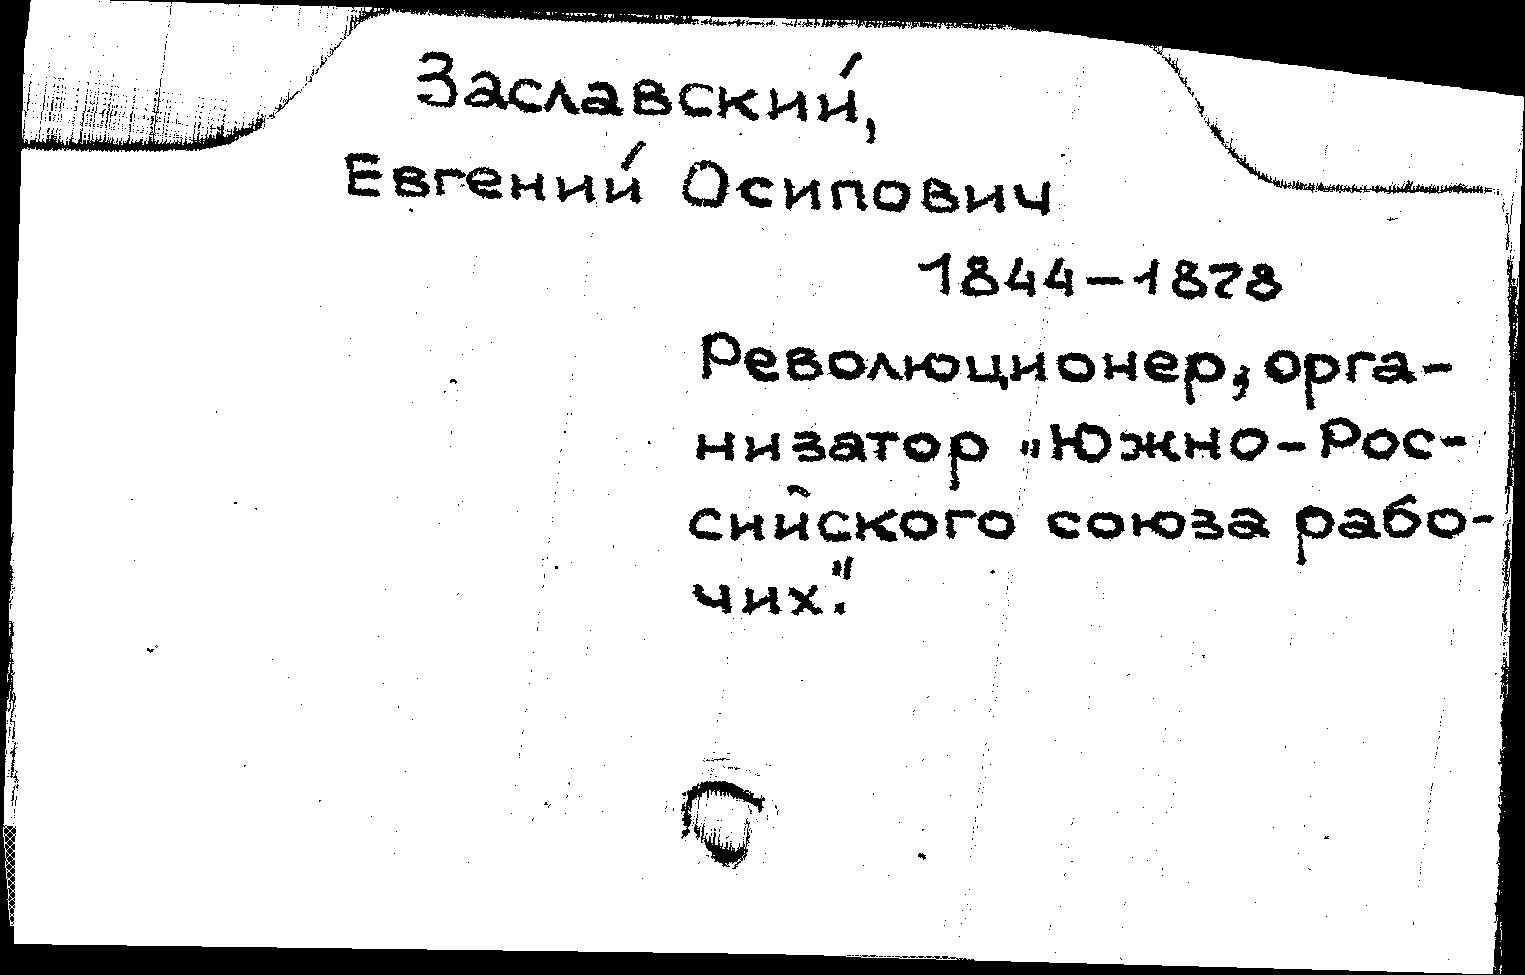 Заславский,
Евгений Осипович
1844-1878
Революционер, орга-
низатор "Южно-Рос-
сийского союза рабо-
чих".